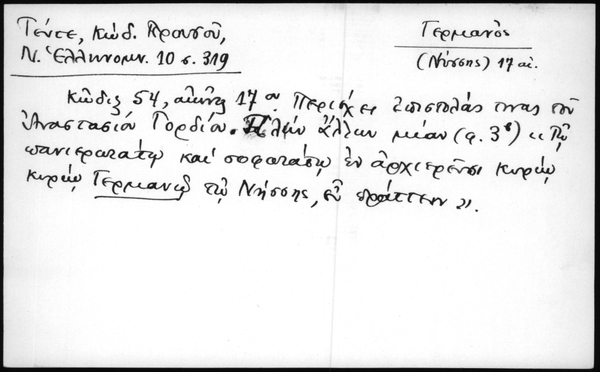 Τένσε, Κώδ. Προυσοῦ,
Ν. Ἑλληνομν. 10 σ. 319
Γερμανὸς
(Νύσσης) 17 αἰ.
Κῶδιξ 54, αἰῶνος 17ου. Περιέχει ἐπιστολάς τινας τοῦ
Ἀναστασίου Γορδίου. Πλὴν ἄλλων μίαν (φ. 3β) «Τῷ
πανιερωτάτῳ καὶ σοφωτάτῳ ἐν ἀρχιερεῦσι κυρίῳ
κυρίῳ Γερμανῷ τῷ Νύσσης, εὖ πράττειν».